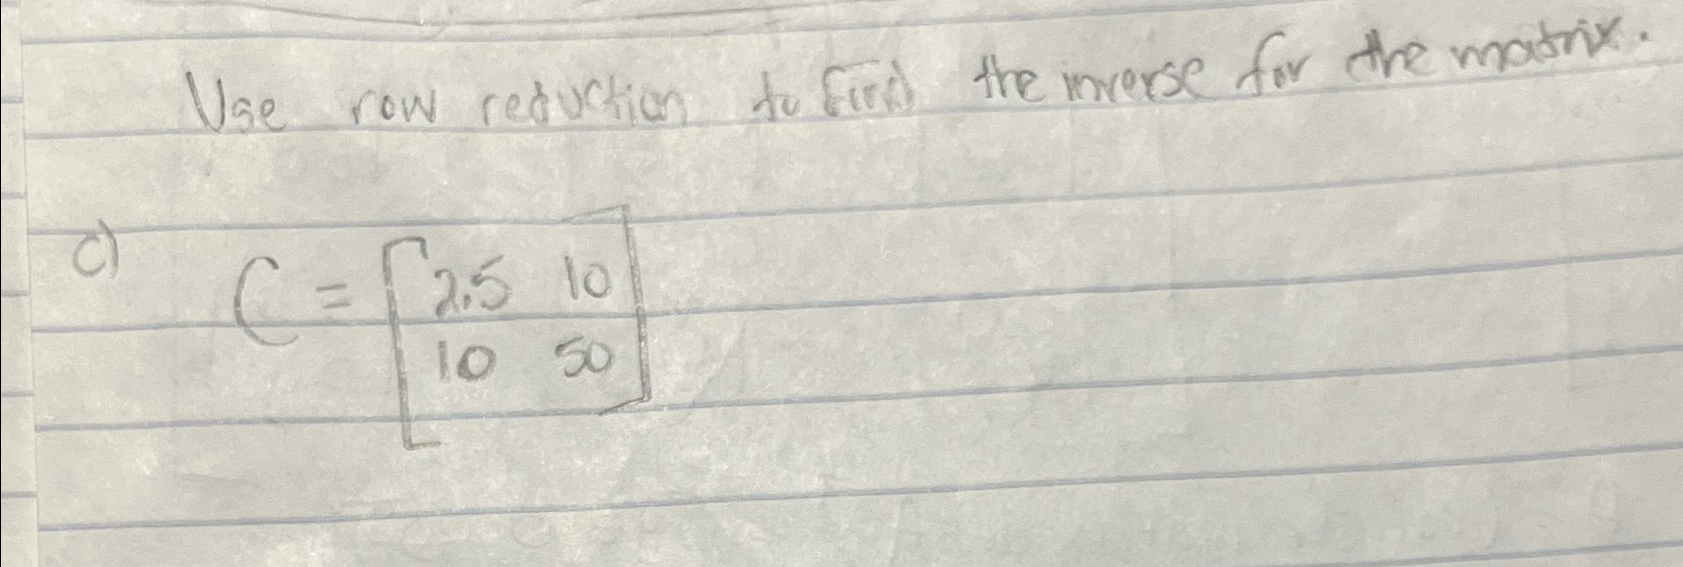 Use row reduction to find the inverse for the matrix.
c) C = [2.5 10
10 50]